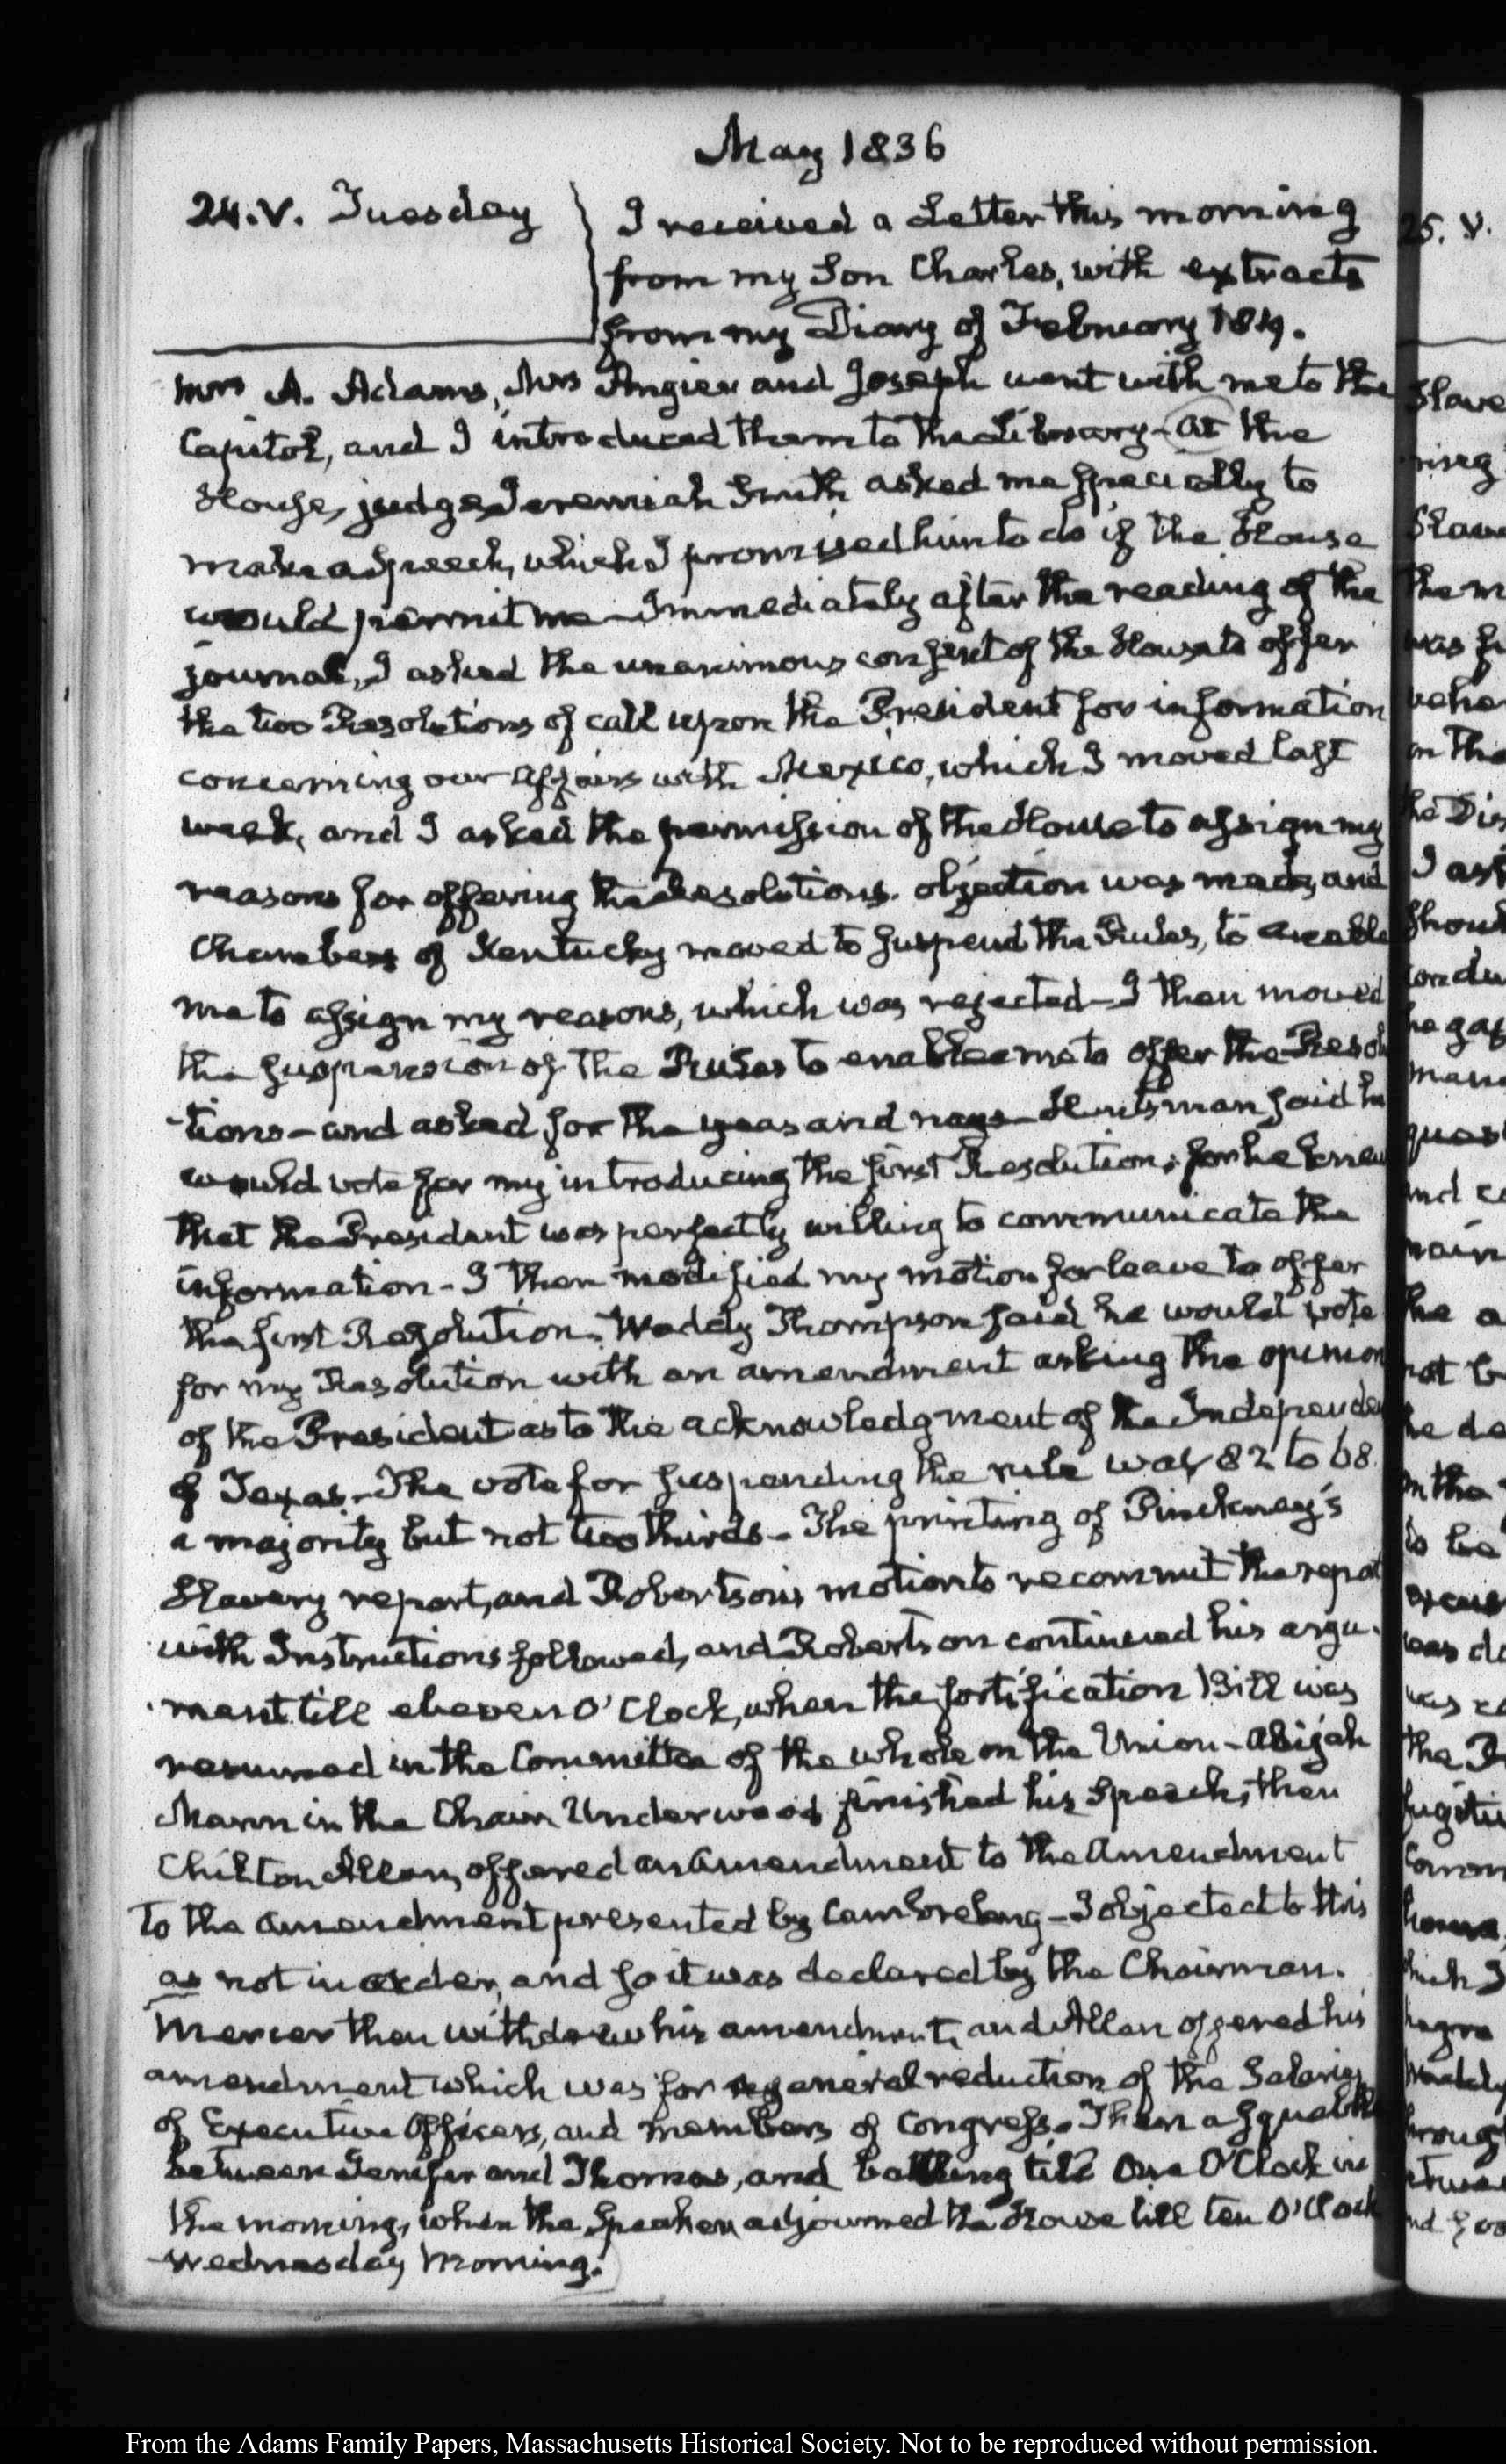 May 1836
24. V. Tuesday
I received a Letter this morning
from my Son Charles, with extracts
from my Diary of February 1819.
Mrs A. Adams, Mrs Angier and Joseph went with me to the
Capitol, and I introduced them to the Library - At the
House, judge Jeremiah Smith asked me specially to
make a speech, which I promised him to do if the House
would permit me - Immediately after the reading of the
journal, I asked the unanimous consent of the House to offer
the two Resolutions of call upon the President for information
concerning our affairs with Mexico, which I moved last
week, and I asked the permission of the House to assign my
reasons for offering the Resolutions. objection was made, and
Chambers of Kentucky moved to suspend the Rules, to enable
me to assign my reasons, which was rejected - I then moved
the suspension of the Rules to enable me to offer the Resolu
-tions - and asked for the yeas and nays - Huntsman said he
would vote for my introducing the first Resolution; for he knew
that the President was perfectly willing to communicate the
information - I then modified my motion for leave to offer
the first Resolution. Waddy Thompson said he would vote
for my Resolution with an amendment asking the opinion
of the President as to the acknowledgment of the Independen
of Texas. The vote for suspending the rule was 82 to 68.
a majority but not two thirds - The printing of Pinckney's
Slavery report, and Robertson's motion to recommit the report
with Instructions followed, and Robertson continued his argu-
ment till eleven O'Clock, when the fortification Bill was
resumed in the Committee of the whole on the Union - Abijah
Mann in the Chair. Underwood finished his Speech; then
Chilton Allan, offered an Amendment to the Amendment
to the amendment presented by Cambreleng - I objected to this
as not in order, and so it was declared by the Chairman.
Mercer then withdrew his amendment, and Allan offered his
amendment which was for a general reduction of the Salaries
of Executive Officers, and members of Congress. Then a squabble
between Jenifer and Thomas, and balling till One O'Clock in
the morning, when the Speaker adjourned the House till ten O'Clock
Wednesday Morning.
25. V.
From the Adams Family Papers, Massachusetts Historical Society. Not to be reproduced without permission.